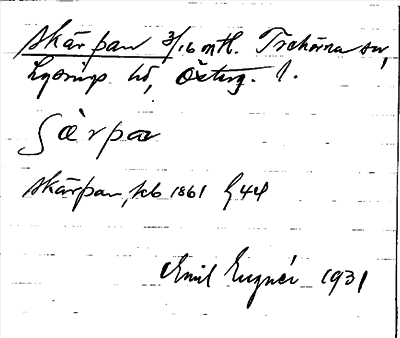 Skärpan 3/16 mtl. Trehörna sn,
Lysings hd, Österg. l.
Särpa
Skärpan, jeb 1861 § 44
Emil Eugnér 1931